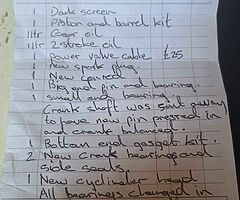 1 Dark screen
1 Piston and barrel kit
1 ltr Gear oil
1 ltr 2 stroke oil
1 power valve cable £25
1 New spark plug.
1 New
1 Big end pin and bearing.
1 small end bearing
Crank shaft was sent away
to have new pin pressed in
and crank balanced.
1 Bottom end gasket kit.
2 New crank bearings and
side seals.
1 New cyclinder head
All bearings changed in